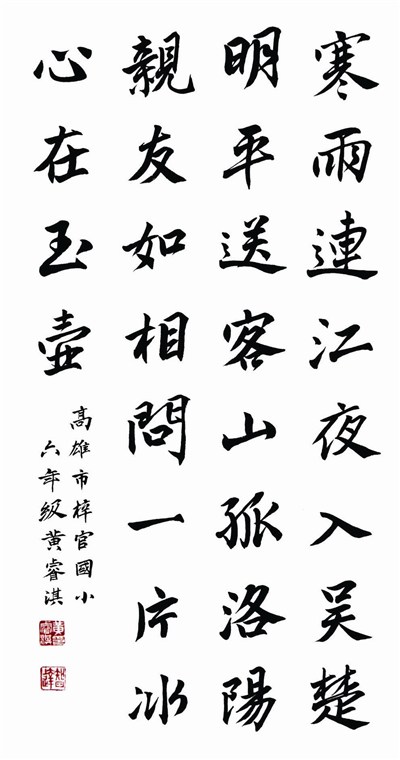 寒雨連江夜入吳楚
明平送客山孤洛陽
親友如相問一片冰
心在玉壺
高雄市梓官國小
六年級黃睿淇